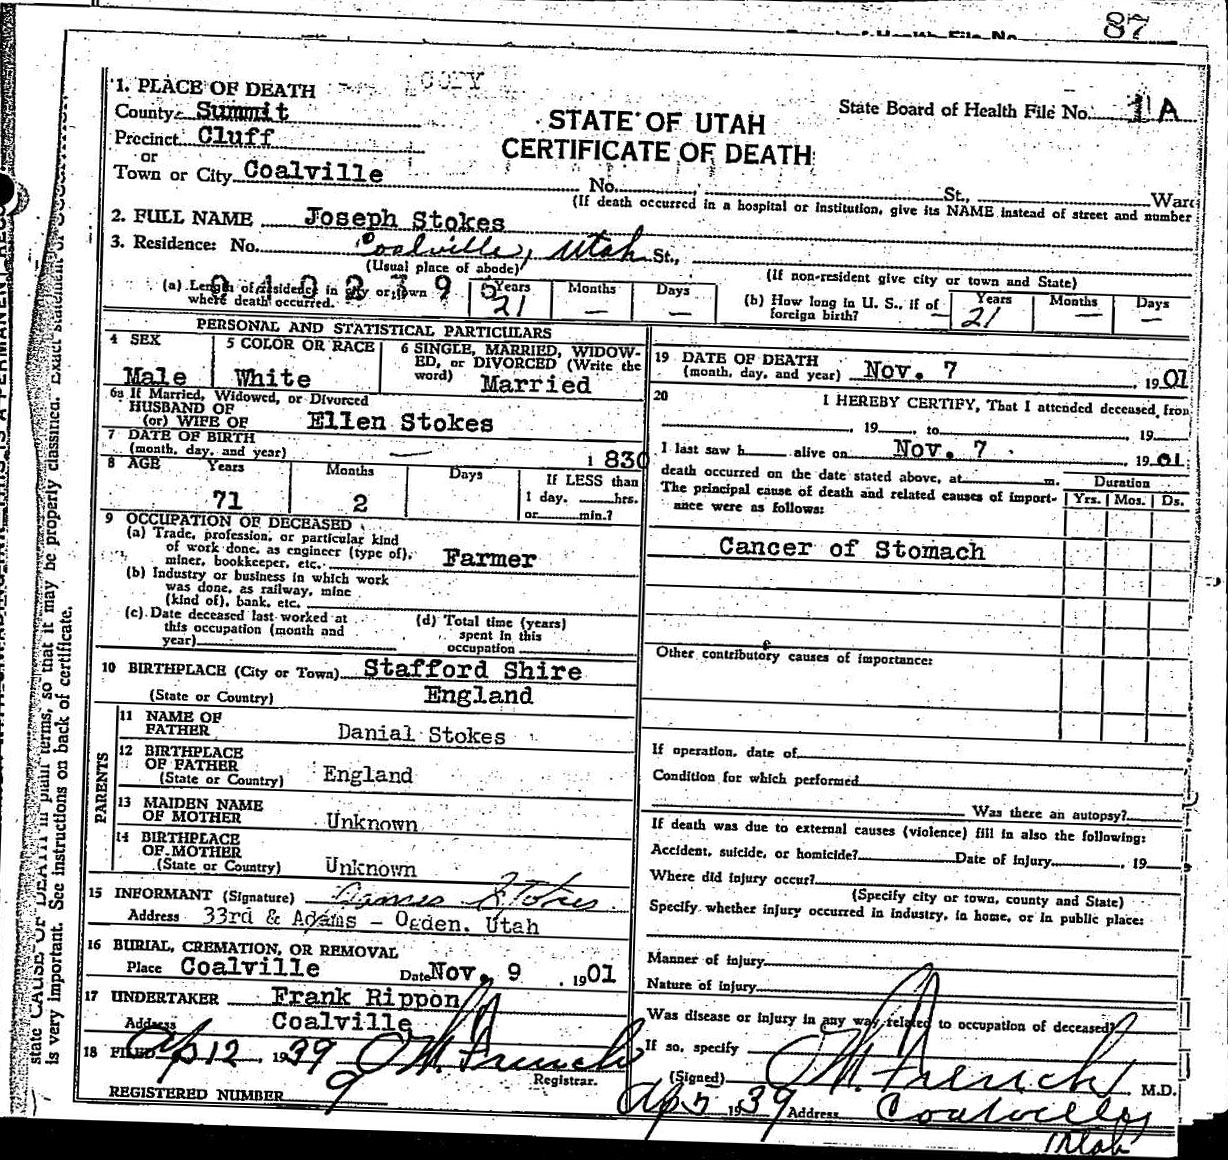 87
COPY
1. PLACE OF DEATH
County Summit
State Board of Health File No. 1 A
STATE OF UTAH
Precinct Cluff
CERTIFICATE OF DEATH
or
Town or City Coalville No. St., Ward
(If death occurred in a hospital or institution, give its NAME instead of street and number
2. FULL NAME Joseph Stokes
3. Residence: No. Coalville, Utah St.,
(Usual place of abode) (If non-resident give city or town and State)
(a) Length of residence in city or town where death occurred. Years 21 Months — Days —
(b) How long in U. S., if of foreign birth? — Years 21 Months — Days —
PERSONAL AND STATISTICAL PARTICULARS
4 SEX
Male
5 COLOR OR RACE
White
6 SINGLE, MARRIED, WIDOW-
ED, or DIVORCED (Write the
word) Married
6a If Married, Widowed, or Divorced
HUSBAND OF
(or) WIFE OF Ellen Stokes
7 DATE OF BIRTH
(month, day, and year) — 1830
8 AGE Years Months Days If LESS than
1 day. hrs.
71 2 or min.?
9 OCCUPATION OF DECEASED
(a) Trade, profession, or particular kind
of work done, as engineer (type of),
miner, bookkeeper, etc. Farmer
(b) Industry or business in which work
was done, as railway, mine
(kind of), bank, etc.
(c) Date deceased last worked at
this occupation (month and
year)
(d) Total time (years)
spent in this
occupation
10 BIRTHPLACE (City or Town) Stafford Shire
(State or Country) England
PARENTS
11 NAME OF
FATHER Danial Stokes
12 BIRTHPLACE
OF FATHER
(State or Country) England
13 MAIDEN NAME
OF MOTHER Unknown
14 BIRTHPLACE
OF MOTHER
(State or Country) Unknown
15 INFORMANT (Signature) Stokes
Address 33rd & Adams - Ogden, Utah
16 BURIAL, CREMATION, OR REMOVAL
Place Coalville Date Nov. 9 , 1901
17 UNDERTAKER Frank Rippon
Address Coalville
18 FILED Ap 12 , 1939 O M. French
Registrar.
REGISTERED NUMBER 9
19 DATE OF DEATH
(month, day, and year) Nov. 7 , 1901
20 I HEREBY CERTIFY, That I attended deceased from
, 19 , to , 19
I last saw h alive on Nov. 7 , 1901
death occurred on the date stated above, at m.
The principal cause of death and related causes of import-
ance were as follows:
Duration
Yrs. Mos. Ds.
Cancer of Stomach
Other contributory causes of importance:
If operation, date of
Condition for which performed
Was there an autopsy?
If death was due to external causes (violence) fill in also the following:
Accident, suicide, or homicide? Date of injury , 19
Where did injury occur?
(Specify city or town, county and State)
Specify whether injury occurred in industry, in home, or in public place:
Manner of injury
Nature of injury
Was disease or injury in any way related to occupation of deceased?
If so, specify
(Signed) O M. French M.D.
1939 Address Coalville,
Utah
state CAUSE OF DEATH in plain terms, so that it may be properly classified. Exact statement of OCCUPATION
is very important. See instructions on back of certificate.